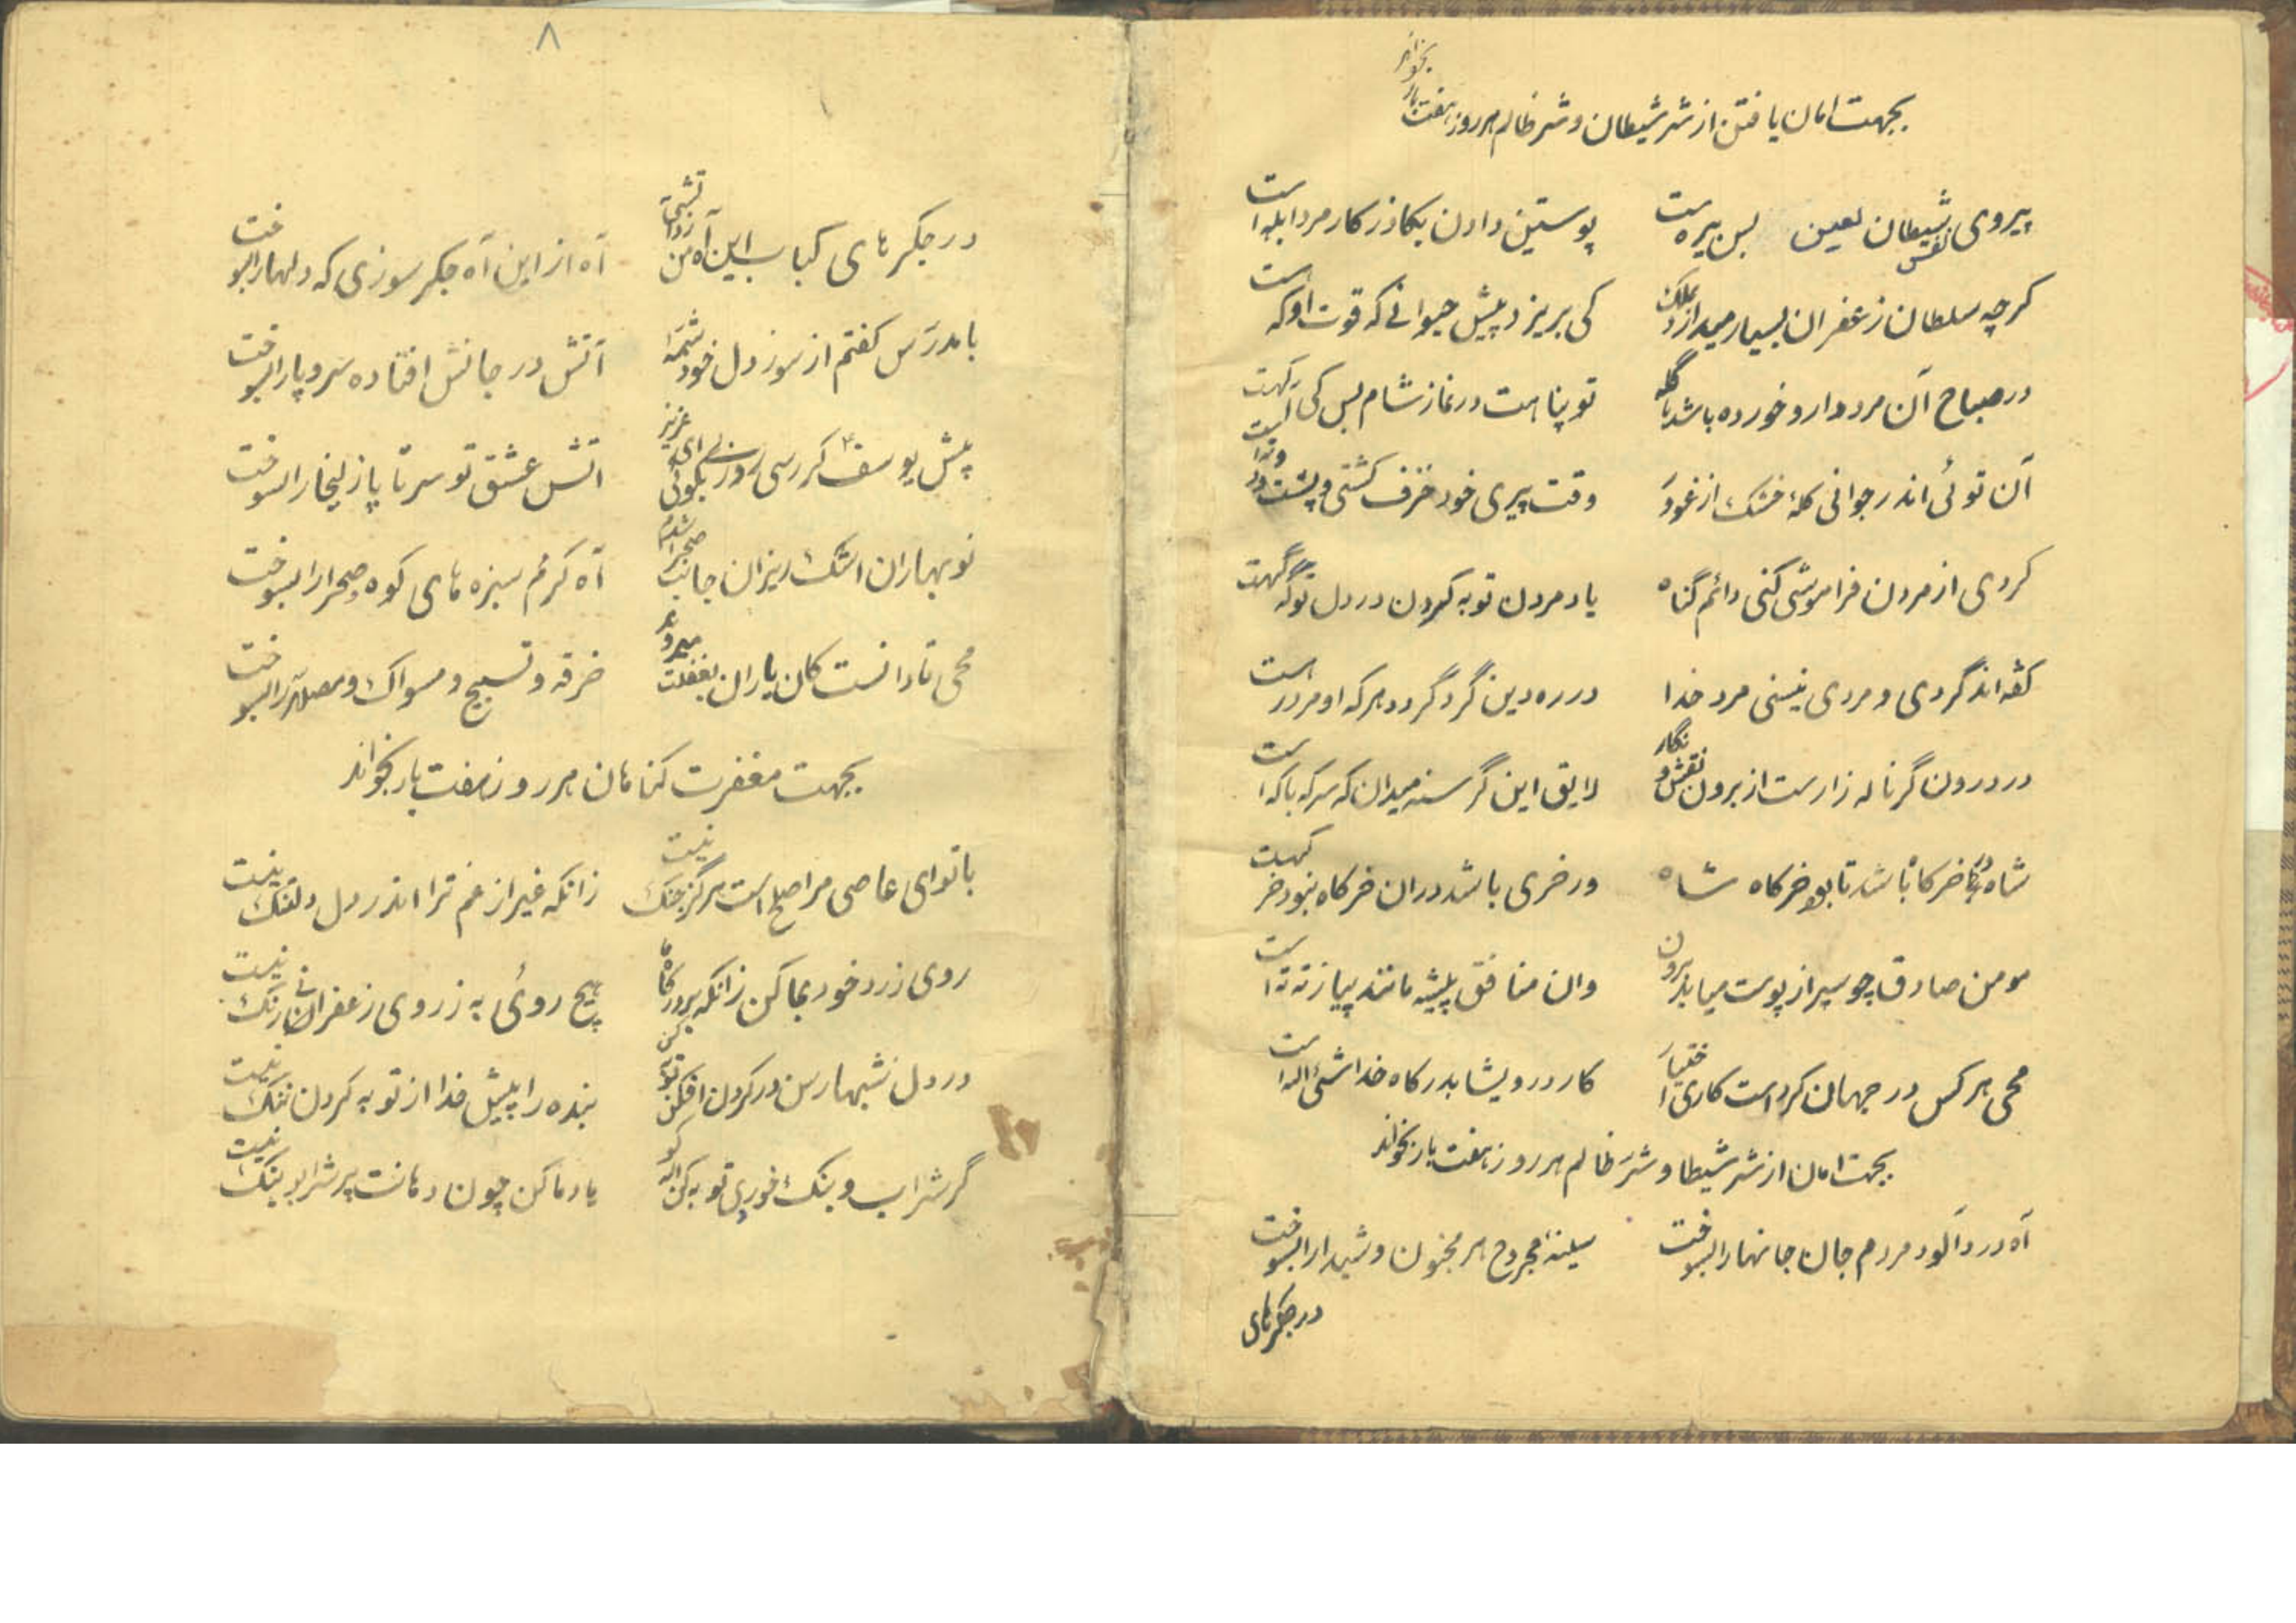 بجهت امان یافتن از شر شیطان و شر ظالم هر روز هفت بار بخواند
پیروی نفس شیطان لعین بس بیره است پوستین دادن بکاذر کار مرد ابله است
کرچه سلطان زعفران بسیار میدارد بملک کی بریزد پیش حیوانی که قوت او که است
در صباح آن مرد دارو خورده باشد با کله تو پناهت در نماز شام بس کی
آن توئی اندر جوانی کلهٔ خشک از غرور وقت پیری خود خزف کشتی و پشتت
کردی از مردن فراموشی کنی دائم گناه یاد مردن توبه کردن در دل تو گه گهت
کفه اند گردی و مردی نیستی مرد خدا در ره دین گرد گردد هر که او مرد ره است
در درون گر ناله زارست از برون نقش و نگار لایق این گرسنه میدان که سرکه با که است
شاه خرکاه باشد تا بود خرکاه شاه ور خری باشد در ان خرکاه نبود خر کهت
مومن صادق چو سیر از پوست میاید برون وان منافق پیشه مانند پیاز ته ته است
محی هر کس در جهان کرد است کاری اختیار کار درویشا بدرکاه خدا شئ الله است
بجهت امان از شر شیطا و شر ظالم هر روز هفت بار بخواند
آه درد آلود مردم جان جانها را بسوخت سینهٔ مجروح هر مجنون و شیدا را بسوخت
در جکرهای
۸
در جکرهای کباب این آه من زد آتشی آه از این آه جکر سوزی که دلها را بسوخت
با مدرس کفتم از سوز دل خود شمهٔ آتش در جانش افتاده سر و پا را بسوخت
پیش یوسف کر رسی روزی بکوئی ای عزیز اتش عشق تو سر تا پا زلیخا را بسوخت
نوبهاران اشک ریزان جانب صحرا شدم آه کرمم سبزه های کوه و صحرا را بسوخت
محی تا دانست کان یاران بغفلت میرود خرقه و تسبیح و مسواک و مصلا را بسوخت
بجهت مغفرت کناهان هر روز هفت بار بخواند
با تو ای عاصی مرا صلح است هرگز جنک نیست زانکه غیر از غم ترا اندر دل دلتنک نیست
روی زرد خود بما کن زانکه بر درکاه ما هیچ روئی به ز روی زعفرانی رنک نیست
در دل شبها رسن در کردن افکن توبه کن بنده را پیش خدا از توبه کردن ننک نیست
گر شراب و بنک خوردی توبه کن الله کو یاد ما کن چون دهانت پر شراب و بنک نیست